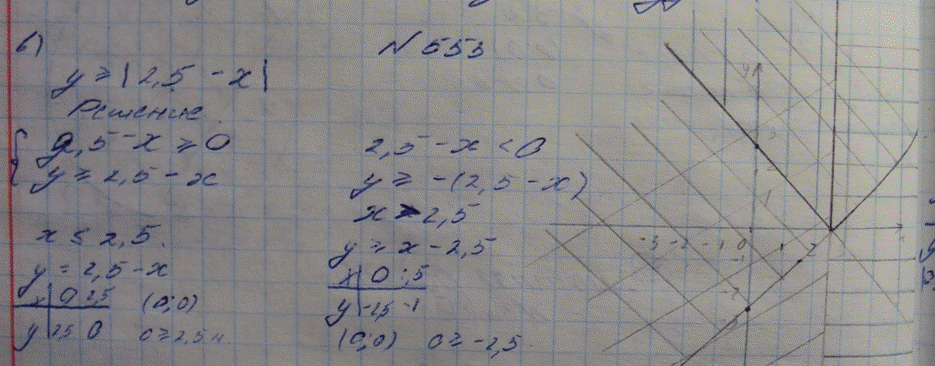 б) N 553
y ≥ |2,5 - x|
Решение
{ 2,5 - x ≥ 0
y ≥ 2,5 - x
x ≤ 2,5.
y = 2,5 - x
x | 0 2,5
y | 2,5 0
(0; 0)
0 ≥ 2,5 н
2,5 - x < 0
y ≥ -(2,5 - x)
x > 2,5
y = x - 2,5
x | 0
y | -2,5 -1
(0; 0) 0 ≥ -2,5
y
3
2
1
-3 -2 -1 0 1 2
-1
-2